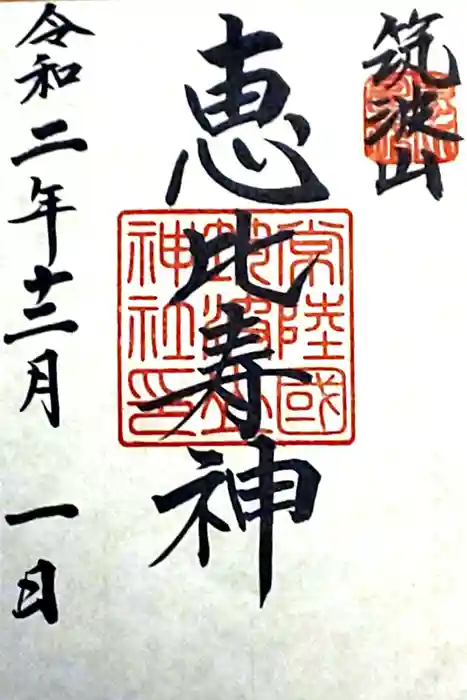 筑波山
恵比寿神
常陸國
神社印
令和二年十二月一日